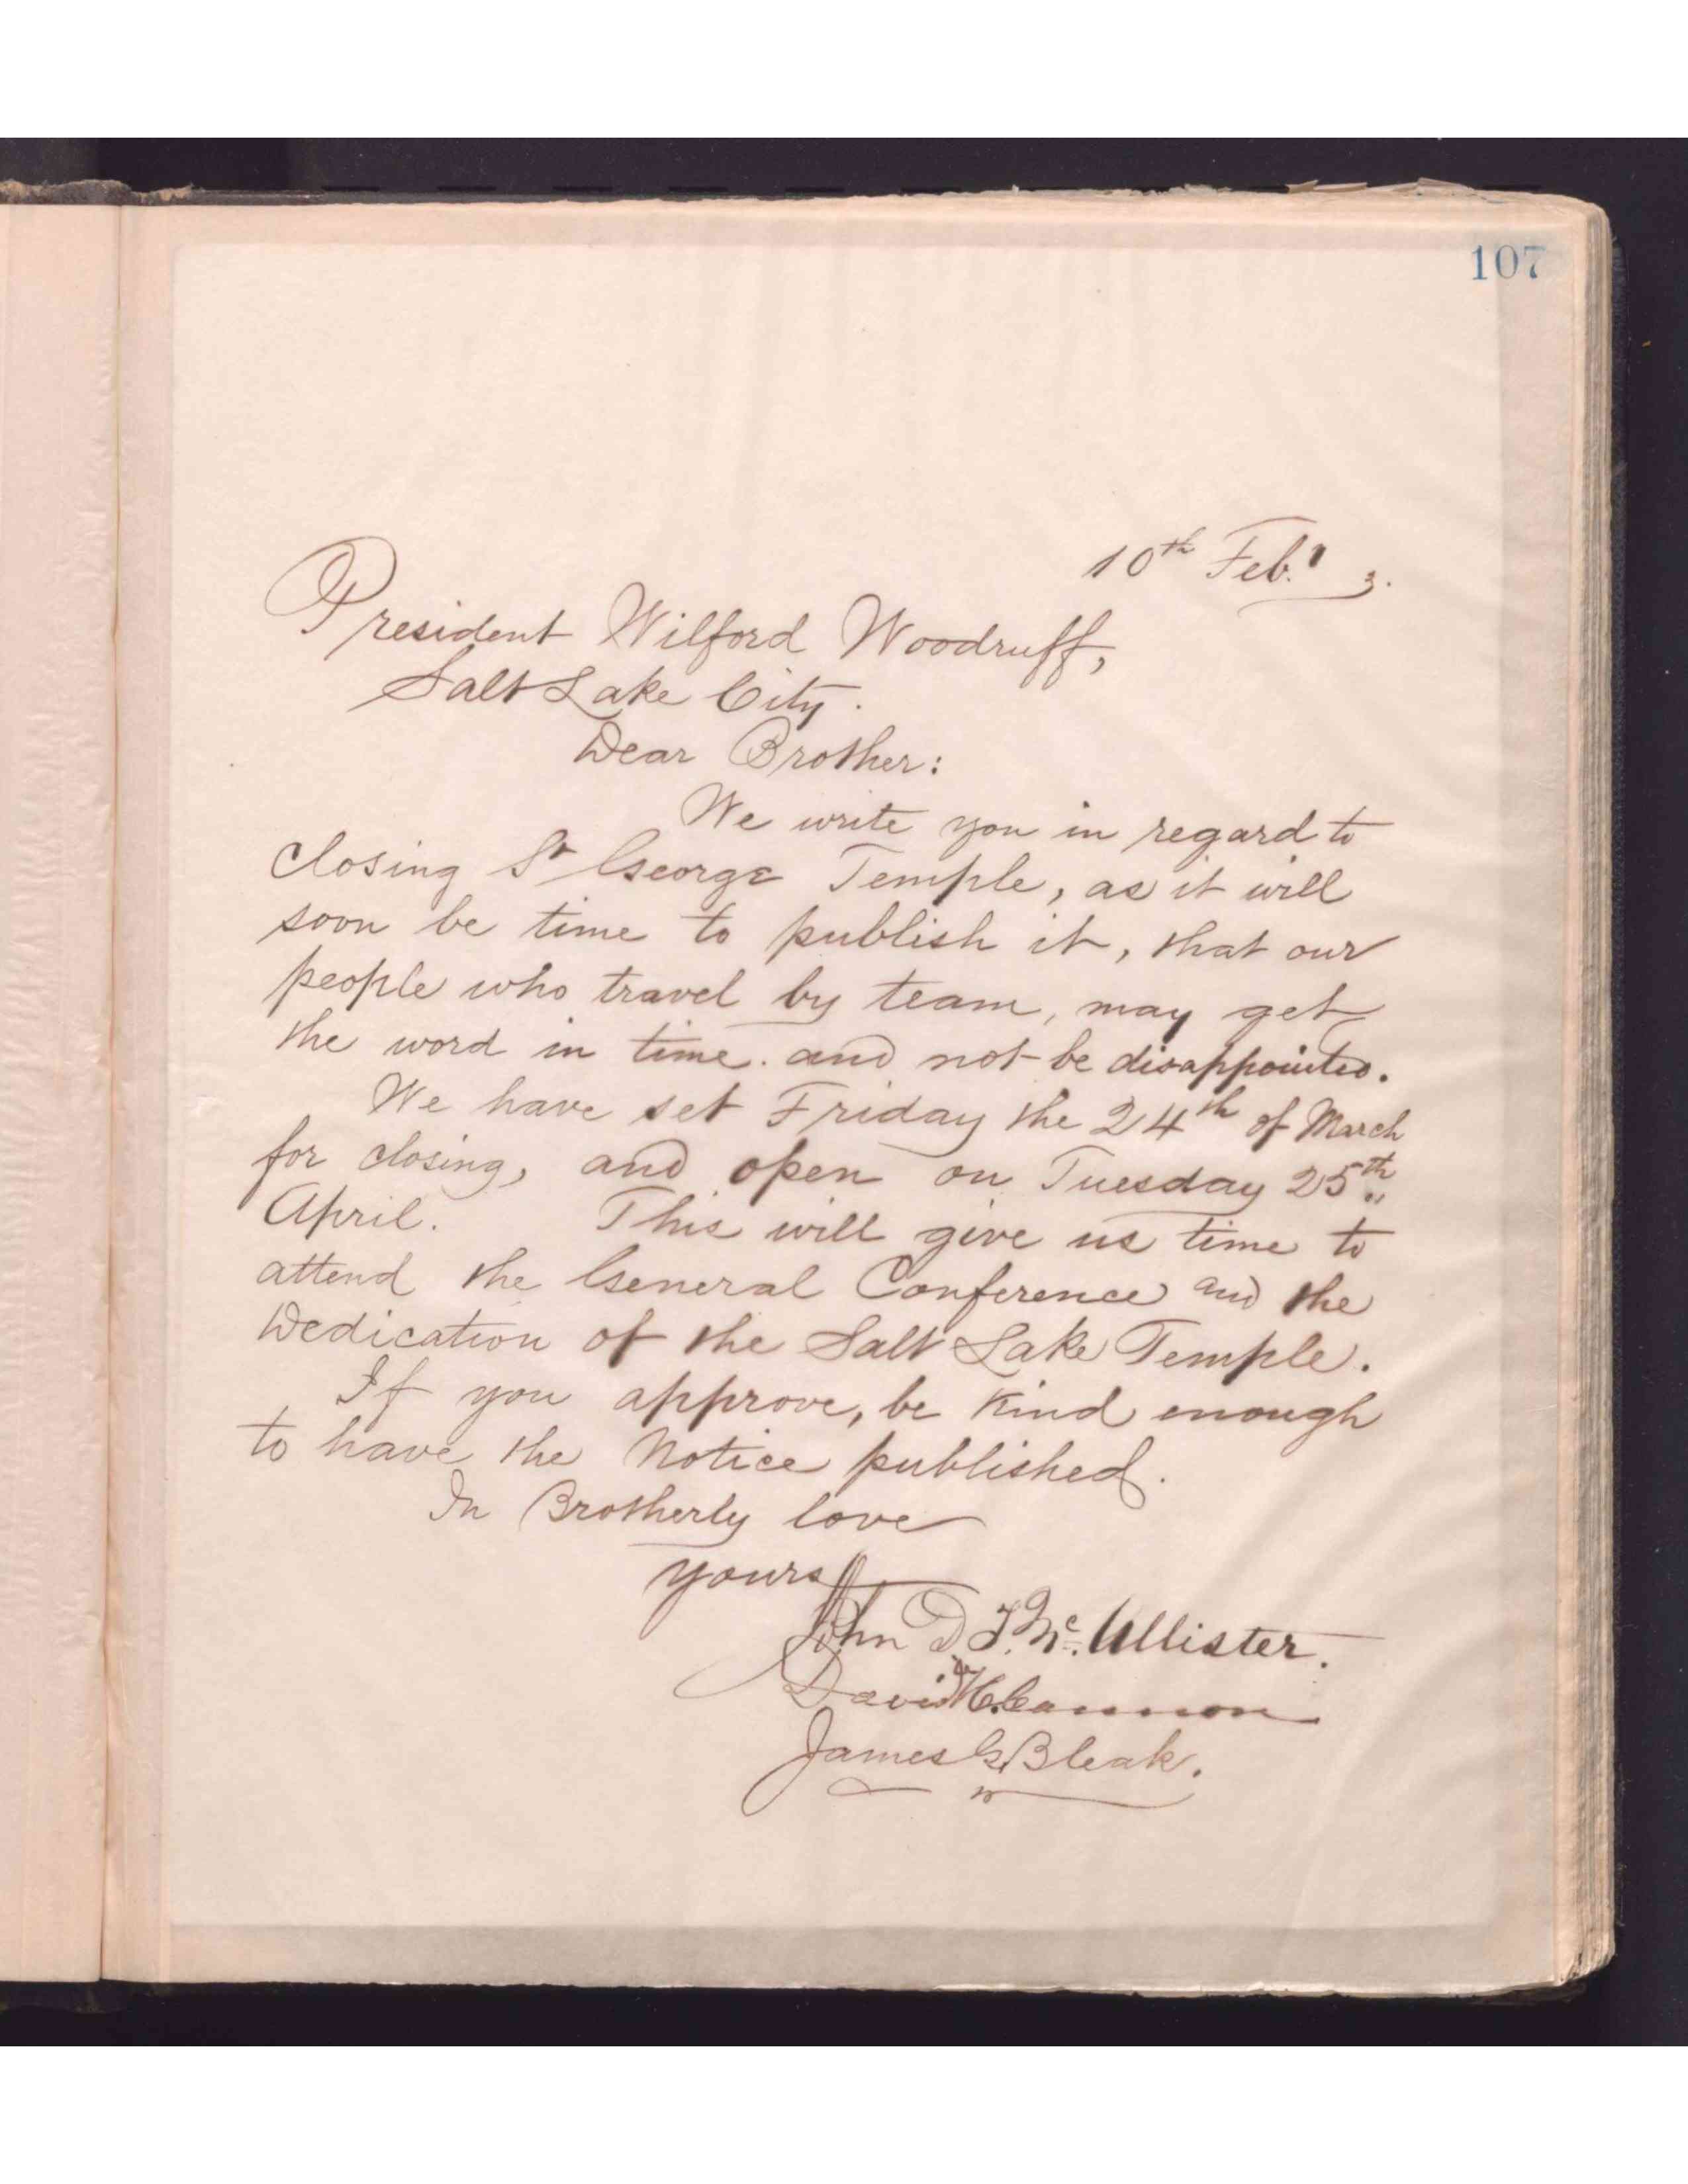 107
10th Feb. 3.
President Wilford Woodruff,
Salt Lake City.
Dear Brother:
We write you in regard to
closing St George Temple, as it will
soon be time to publish it, that our
people who travel by team, may get
the word in time. and not be disappointed.
We have set Friday the 24th of March
for closing, and open on Tuesday 25th
April. This will give us time to
attend the General Conference and the
Dedication of the Salt Lake Temple.
If you approve, be kind enough
to have the Notice published.
In Brotherly love
yours
John D. T. Mc.Allister.
David H. Cannon
James G. Bleak.